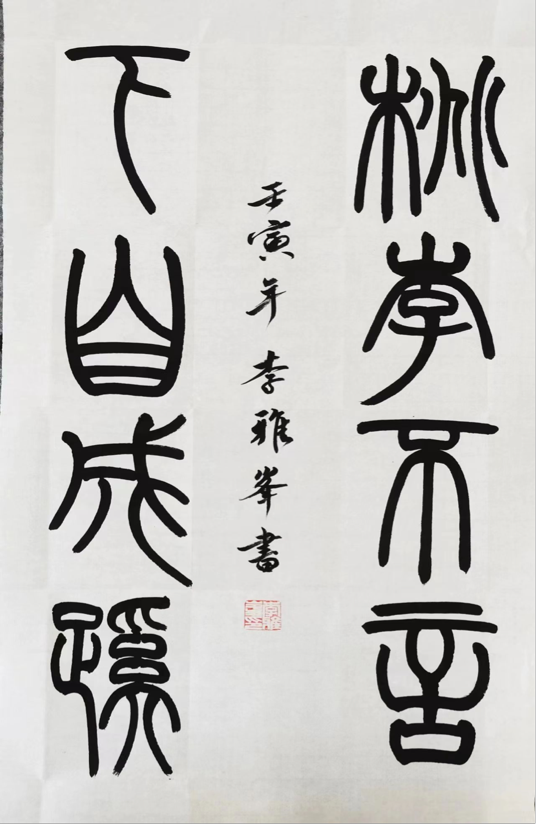 桃李不言
下自成蹊
壬寅年李雅峯書